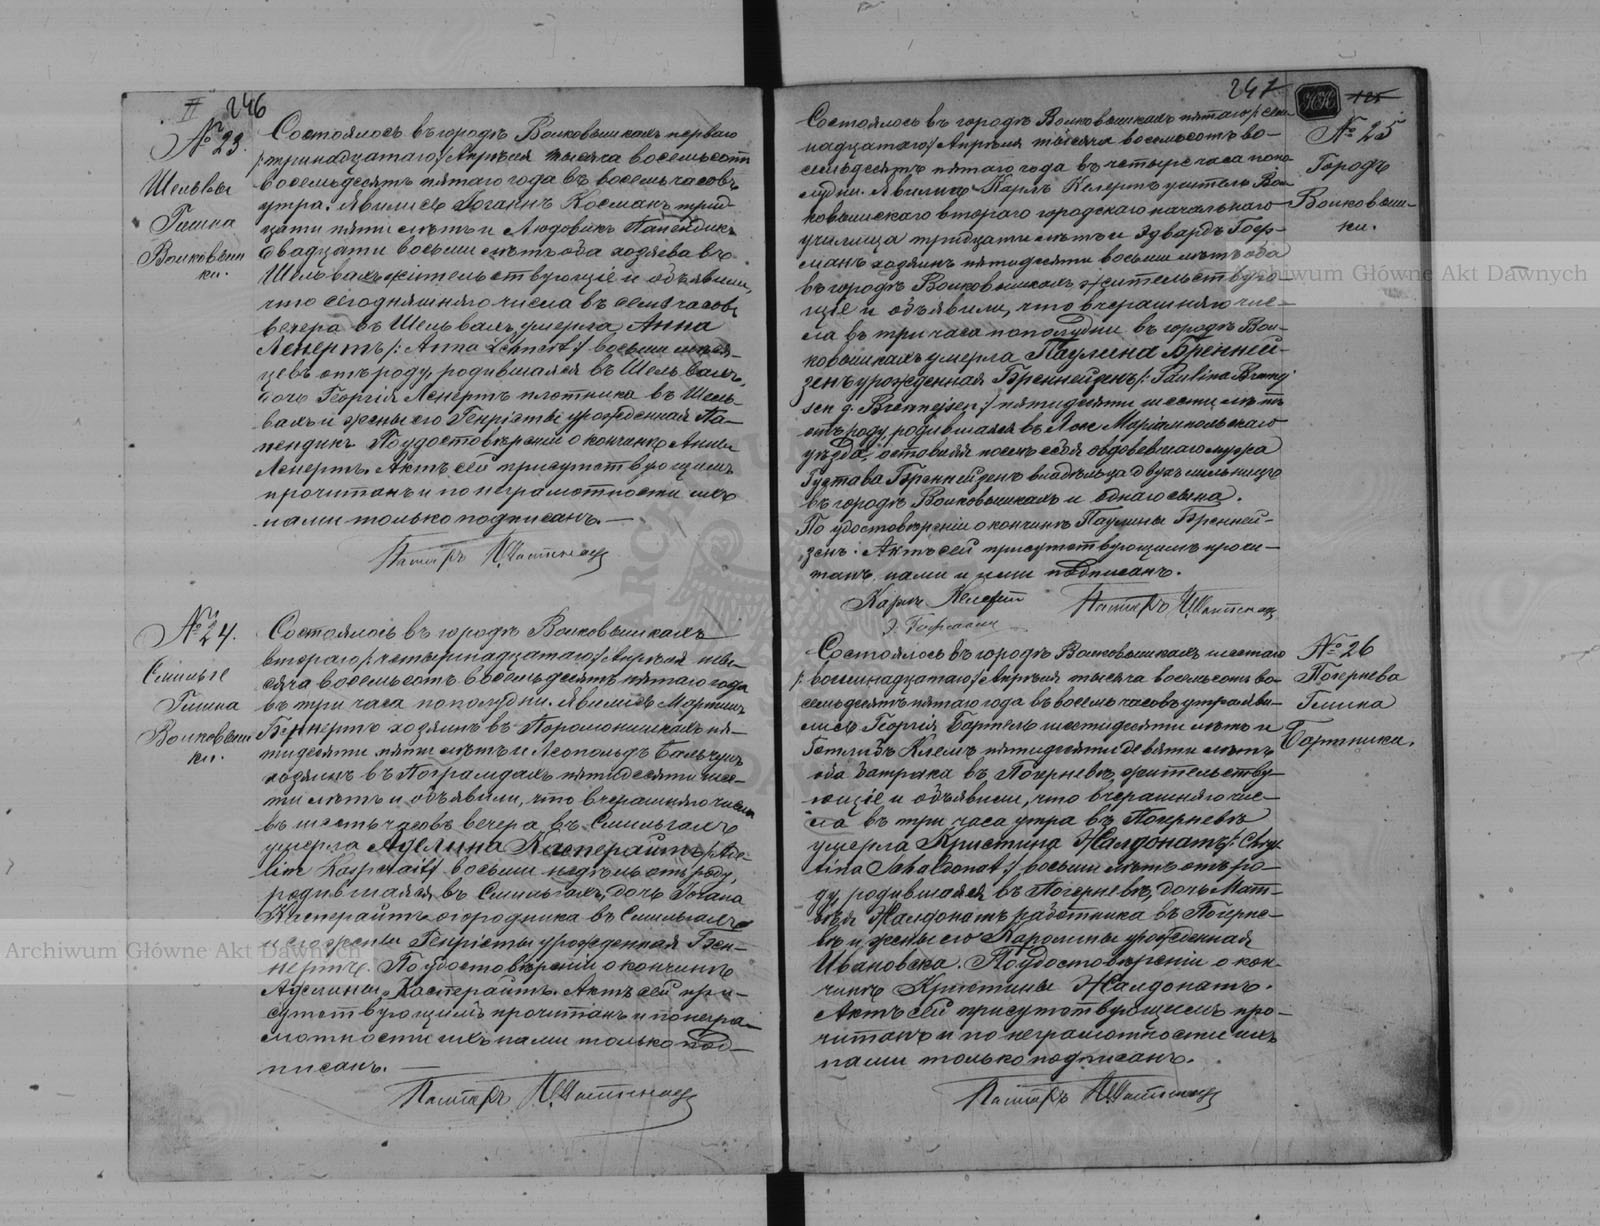 II 246
№ 23.
Шельвы
Гмина
Волковыш
ки.
Состоялось въ городѣ Волковышкахъ перваго
/:тринадцатаго/ Апрѣля тысяча восемьсотъ
восемьдесятъ пятаго года въ восемь часовъ
утра. Явились Іоганнъ Косманъ трид-
цати пяти лѣтъ и Людовикъ Папендикъ
двадцати восьми лѣтъ оба хозяева въ
Шельвахъ жительствующіе и объявили,
что сегодняшняго числа въ семь часовъ
вечера въ Шельвахъ умерла Анна
Ленертъ /: Anna Lehnert :/ восьми мѣся-
цевъ отъ роду, родившаяся въ Шельвахъ,
дочь Георгія Ленертъ плотника въ Шель-
вахъ и жены его Генріеты урожденная Па-
пендикъ. По удостовѣреніи о кончинѣ Анны
Ленертъ. Актъ сей присутствующимъ
прочитанъ и по неграмотности ихъ
нами только подписанъ. —
Пасторъ
№ 24.
Смильге
Гмина
Волковыш
ки.
Состоялось въ городѣ Волковышкахъ
втораго /:четырнадцатаго/ Апрѣля ты-
сяча восемьсотъ восемьдесятъ пятаго года
въ три часа пополудни. Явились Мартинъ
хозяинъ въ пя-
тидесяти пяти лѣтъ и Леопольдъ
хозяинъ въ пятидесяти шес-
ти лѣтъ и объявили, что вчерашняго числа
въ шесть часовъ вечера въ Смильгахъ
умерла Аделина Касперайтъ /: Ade-
line Kasperaitt восьми недѣль отъ роду,
родившаяся въ Смильгахъ, дочь Іогана
Касперайтъ огородника въ Смильгахъ
и его жены Генріеты урожденная Бен-
нертъ. По удостовѣреніи о кончинѣ
Аделины Касперайтъ. Актъ сей при-
сутствующимъ прочитанъ и по негра-
мотности ихъ нами только под-
писанъ. —
Пасторъ
247
125
№ 25
Городъ
Волковыш-
ки.
Состоялось въ городѣ Волковышкахъ пятаго /:сем-
надцатаго/ Апрѣля тысяча восемьсотъ во-
семьдесятъ пятаго года въ четыре часа попо-
лудни. Явились Карлъ Келертъ учитель Вол-
ковышскаго втораго городскаго начальнаго
училища тридцати лѣтъ и Эдвардъ Гоф-
манъ хозяинъ пятидесяти восьми лѣтъ оба
въ городѣ Волковышкахъ жительствую-
щіе и объявили, что вчерашняго чис-
ла въ три часа пополудни въ городѣ Вол-
ковышкахъ умерла Паулина Бренней-
зенъ урожденная Бреннейзенъ /: Paulina Brennej-
sen g. Brennejsen :/ пятидесяти шести лѣтъ
отъ роду, родившаяся въ Маріампольскаго
уѣзда, оставляя послѣ себя овдовѣвшаго мужа
Густава Бреннейзенъ владѣльца двухъ мельницъ
въ городѣ Волковышкахъ и однаго сына.
По удостовѣреніи о кончинѣ Паулины Бренней-
зенъ. Актъ сей присутствующимъ прочи-
танъ, нами и ими подписанъ.
Карлъ Келертъ Пасторъ
Э. Гофманъ
№ 26
Погернева
Гмина
Бартники.
Состоялось въ городѣ Волковышкахъ шестаго
/: восемнадцатаго/ Апрѣля тысяча восемьсотъ во-
семьдесятъ пятаго года въ восемь часовъ утра. Яви-
лись Георгій Бартель шестидесяти лѣтъ и
Готлибъ Клемъ пятидесяти девяти лѣтъ
оба батрака въ Погерневѣ, жительству-
ющіе и объявили, что вчерашняго чис-
ла въ три часа утра въ Погерневѣ
умерла Кристина Жалдонатъ /: Chrys-
tina Schaldonat :/ восьми лѣтъ отъ ро-
ду, родившаяся въ Погерневѣ, дочь Мат-
вѣя Жалдонатъ работника въ Погерне-
вѣ и жены его Каролины урожденная
Ивановска. По удостовѣреніи о кон-
чинѣ Кристины Жалдонатъ.
Актъ сей присутствующимъ про-
читанъ и по неграмотности ихъ
нами только подписанъ.
Пасторъ
Archiwum Główne Akt Dawnych
Archiwum Główne Akt Dawnych